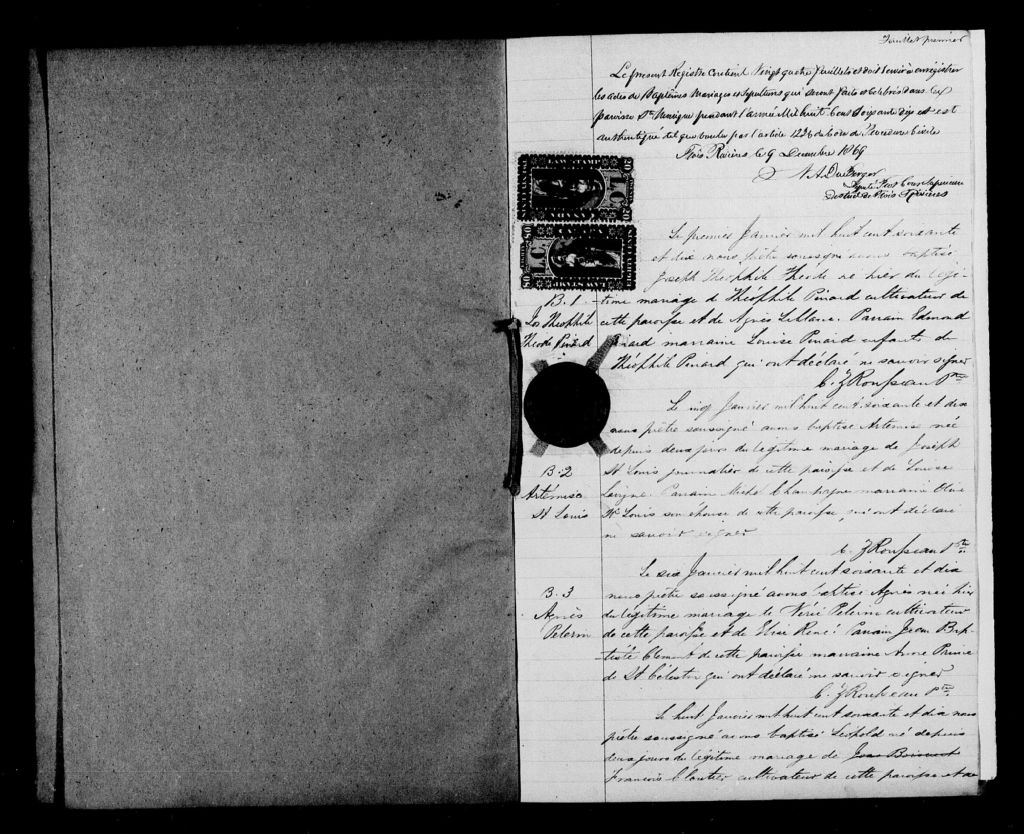 Feuillet premier
Le present Registre Contient Vingt quatre feuillets et doit servir à enregistrer
les actes de Baptêmes Mariages et Sépultures qui seront faits et célébrés dans la
paroisse Ste Monique pendant l'année Mil huit Cent Soixante dix et est
authentiqué tel que voulu par l'article 1236 du Code de Procédure Civile
Trois Rivières le 9 Decembre 1869
Député Prot Cour Supérieure
District de Trois Rivières
LAW STAMP
CANADA
20
LC
80
LC
LAW STAMP
EIGHTY CENTS
Le premier Janvier mil huit cent soixante
et dix nous prêtre soussigné avons baptisé
Joseph Théophile Théode né hier du légi-
B. 1. -time mariage de Théophile Pinard cultivateur de
Jos Théophile cette paroisse et de Agnès Leblanc. Parrain Edmond
Théode Pinard Pinard marraine Louise Pinard enfants de
Théophile Pinard qui ont déclaré ne savoir signer
C. Z Rousseau Ptre
Le cinq Janvier mil huit cent soixante et dix
nous prêtre soussigné avons baptisé Artémise née
depuis deux jours du légitime mariage de Joseph
B. 2 St Louis journalier de cette paroisse et de Louise
Artémise Lavigne. Parrain Michel Champagne marraine Olive
St Louis St Louis son épouse de cette paroisse, qui ont déclaré
ne savoir signer
C. Z Rousseau Ptre
Le six Janvier mil huit cent soixante et dix
B. 3 nous prêtre soussigné avons baptisé Agnès née hier
Agnès du légitime mariage de Néré Pelerin cultivateur
Pelerin de cette paroisse et de Elise René. Parrain Jean Bap-
-tiste Clement de cette paroisse marraine Anne Prince
de St Célestin qui ont déclaré ne savoir signer
C. Z Rousseau Ptre
Le huit Janvier mil huit cent soixante et dix nous
prêtre soussigné avons baptisé Léopold né depuis
deux jours du légitime mariage de Jean
François Cloutier cultivateur de cette paroisse et de